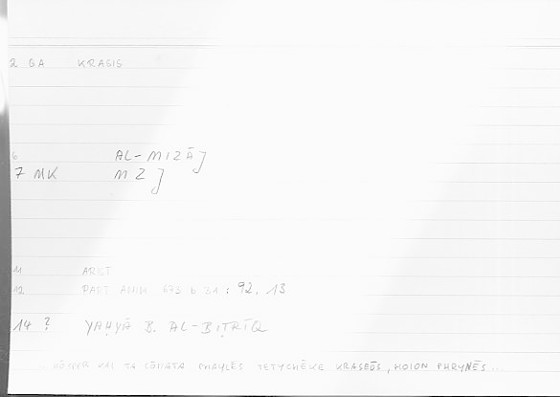 2 GA KRASIS
6 AL-MIZĀJ
7 MK MZJ
11 ARST
12 PART ANIM 673 b 31 : 92, 13
14 ? YAḤYĀ B. AL-BIṬRĪQ
KAI TA SŌMATA PHAYLĒS TETYCHĒKE KRASEŌS, HOION PHRYNĒS..